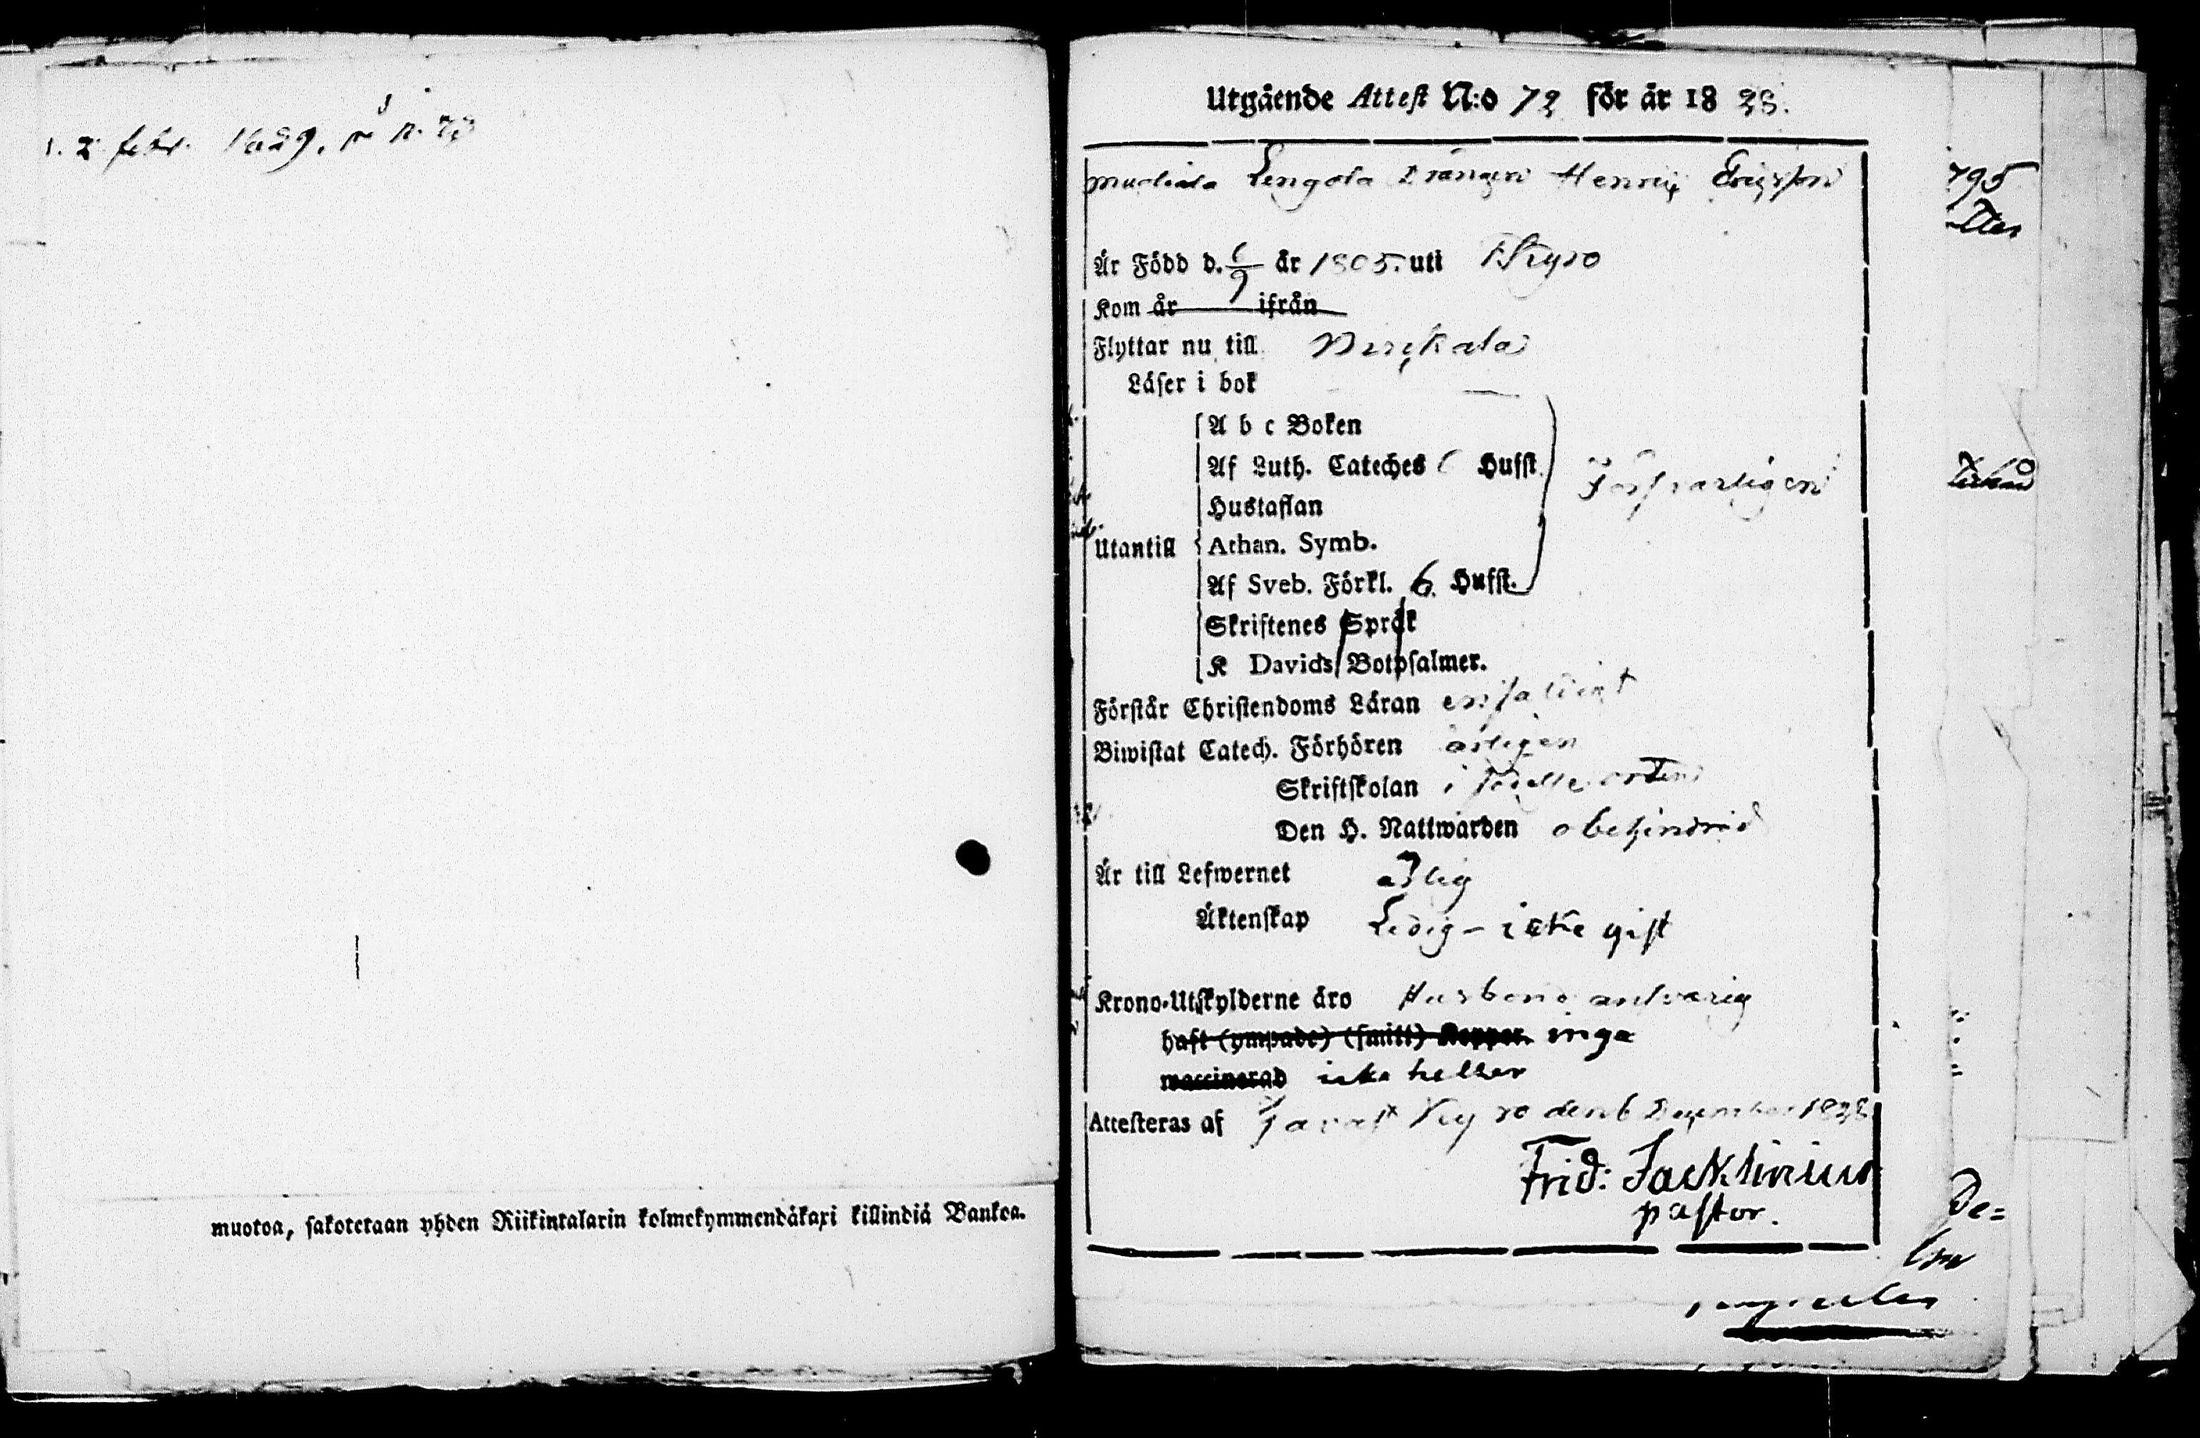 2 febr. 1829. n. 73
muotoa, sakotetaan yhden Riikintalarin kolmekymmendäkaxi killindiä Bankoa.
Utgående Attest N:o 72 för år 1828.
Lengola Drängen Henric Ericsson
Är Född d. 6/9 år 1805. uti Kyro
Kom år ifrån
Flyttar nu till Birkala
Läser i bok
A b c Boken
Af Luth. Cateches 6 Hufst.
Försvarligen
Hustaflan
Utantill Athan. Symb.
Af Sveb. Förkl. 6 Hufst.
Skriftenes Språk
K Davids Botpsalmer.
Förstår Christendoms Läran enfaldigt
Biwistat Catech. Förhören årligen
Skriftskolan i orten
Den H. Nattwarden obehindrad
Är till Lefwernet ärlig
Äktenskap Ledig - icke gift
Krono-Utskylderne äro Husbond answarig
haft (ympade) (smitt) Koppor. inga
waccinerad icke heller
Attesteras af Tavast Kyro den 6 December 1828
Frid: Jack
pastor.
795
De=